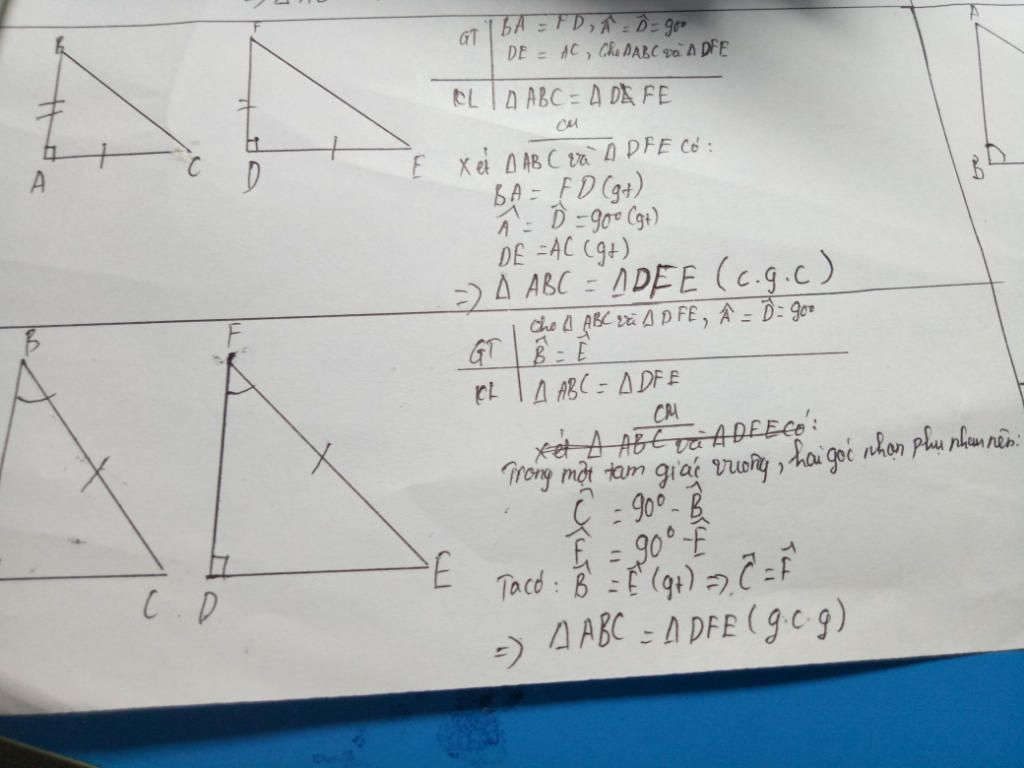 B
A
C
F
D
E
GT BA = FD, Â = D̂ = 90⁰
DE = AC, Cho ΔABC và ΔDFE
KL Δ ABC = Δ DFE
CM
Xét ΔABC và Δ DFE có:
BA = FD (gt)
Â = D̂ = 90⁰ (gt)
DE = AC (gt)
=> Δ ABC = ΔDFE (c.g.c)
A
B
B
C
F
D
E
GT Cho Δ ABC và Δ DFE, Â = D̂ = 90⁰
B̂ = Ê
KL Δ ABC = Δ DFE
CM
Xét Δ ABC và Δ DFE có:
Trong một tam giác vuông, hai góc nhọn phụ nhau nên:
Ĉ = 90⁰ - B̂
F̂ = 90⁰ - Ê
Ta có: B̂ = Ê (gt) => Ĉ = F̂
=> Δ ABC = Δ DFE (g.c.g)